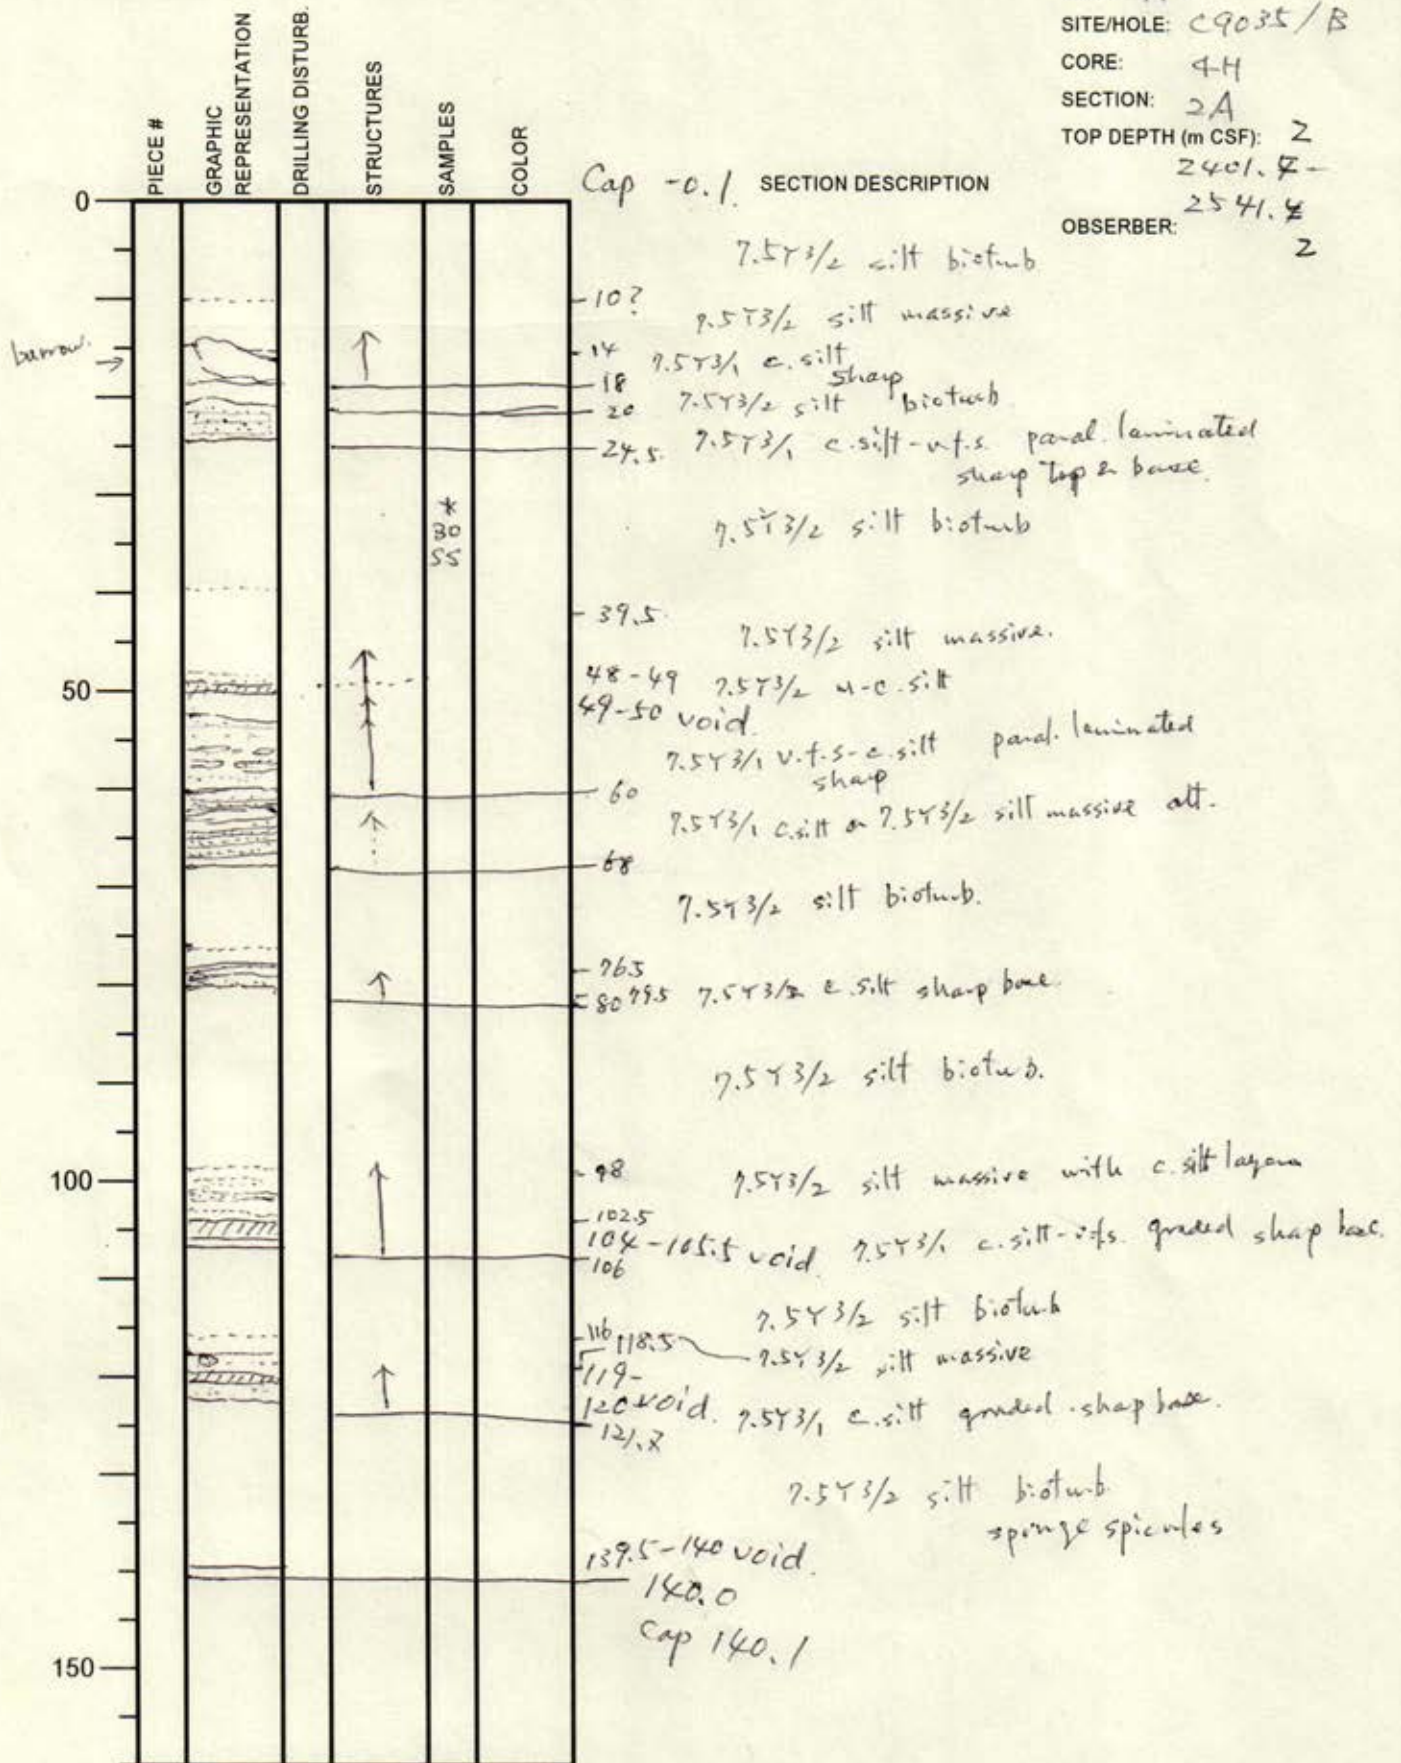 SITE/HOLE: C9035/B
CORE: 4-H
SECTION: 2A
TOP DEPTH (m CSF): 2
2401.4-
2541.4
2
OBSERBER:
PIECE #
GRAPHIC REPRESENTATION
DRILLING DISTURB.
STRUCTURES
SAMPLES
COLOR
Cap -0.1. SECTION DESCRIPTION
0
7.5Y3/2 silt bioturb
10?
7.5Y3/2 silt massive
burrow.
14 7.5Y3/1 c.silt
sharp
18
20 7.5Y3/2 silt bioturb
24.5. 7.5Y3/1 c.silt-v.f.s. paral. laminated
sharp top & base.
*
30
SS
7.5Y3/2 silt bioturb
39.5
7.5Y3/2 silt massive.
48-49 7.5Y3/2 c.silt
50
49-50 void.
7.5Y3/1 v.f.s-c.silt paral. laminated
sharp
60
7.5Y3/1 c.silt 7.5Y3/2 silt massive alt.
68
7.5Y3/2 silt bioturb.
76.5
80 79.5 7.5Y3/2 c.silt sharp base.
7.5Y3/2 silt bioturb.
98
100
7.5Y3/2 silt massive with c.silt layers
102.5
104-105.5 void. 7.5Y3/1 c.silt-v.f.s. graded shap base.
106
7.5Y3/2 silt bioturb
116 118.5 7.5Y3/2 silt massive
119-
120 void. 7.5Y3/1 c.silt graded shap base.
121.7
7.5Y3/2 silt bioturb
sponge spicules
139.5-140 void.
140.0
Cap 140.1
150